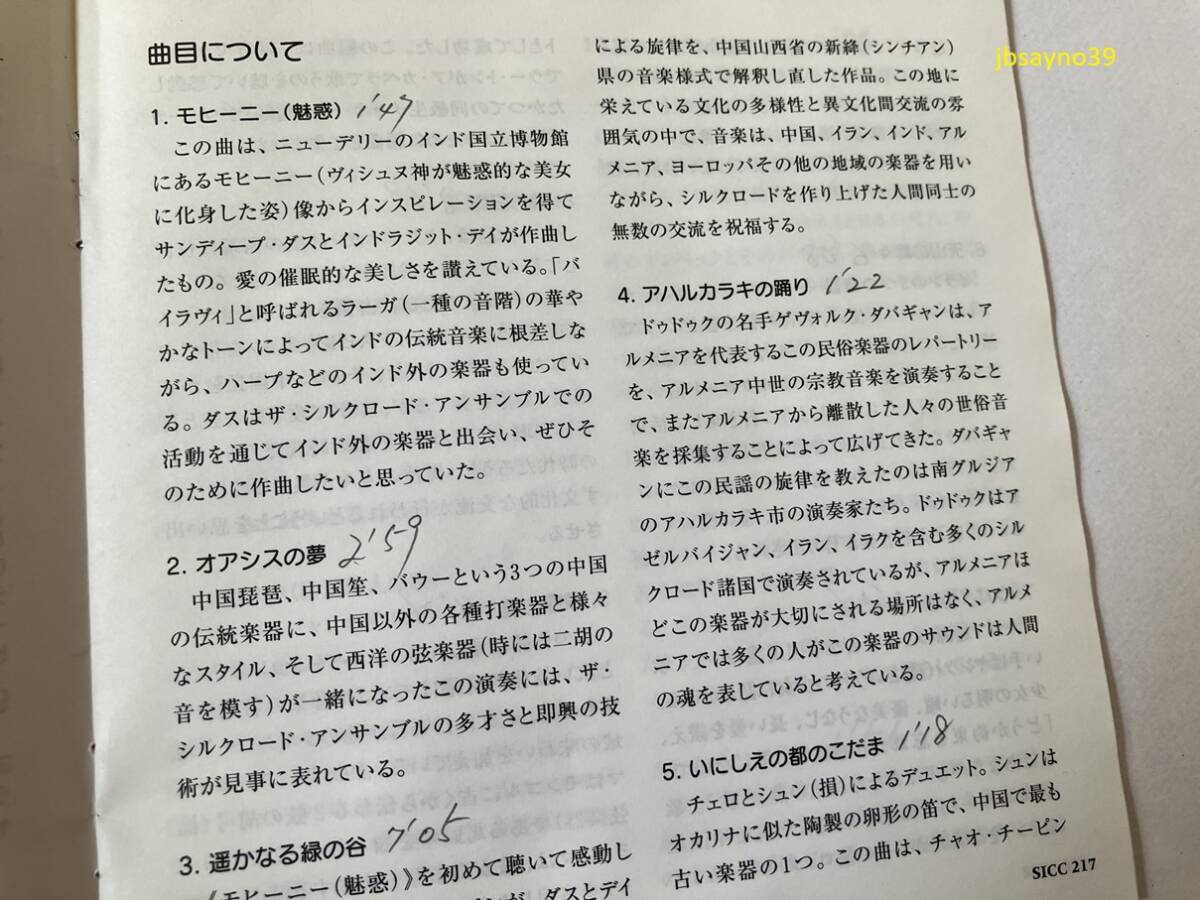 曲目について
1. モヒーニー(魅惑) 1'47
この曲は、ニューデリーのインド国立博物館
にあるモヒーニー(ヴィシュヌ神が魅惑的な美女
に化身した姿)像からインスピレーションを得て
サンディープ・ダスとインドラジット・デイが作曲し
たもの。愛の催眠的な美しさを讃えている。「バ
イラヴィ」と呼ばれるラーガ(一種の音階)の華や
かなトーンによってインドの伝統音楽に根差しな
がら、ハープなどのインド外の楽器も使ってい
る。ダスはザ・シルクロード・アンサンブルでの
活動を通じてインド外の楽器と出会い、ぜひそ
のために作曲したいと思っていた。
2. オアシスの夢 2'59
中国琵琶、中国笙、バウーという3つの中国
の伝統楽器に、中国以外の各種打楽器と様々
なスタイル、そして西洋の弦楽器(時には二胡の
音を模す)が一緒になったこの演奏には、ザ・
シルクロード・アンサンブルの多才さと即興の技
術が見事に表れている。
3. 遥かなる緑の谷 7'05
《モヒーニー(魅惑)》を初めて聴いて感動し
が、ダスとデイ
による旋律を、中国山西省の新絳(シンチアン)
県の音楽様式で解釈し直した作品。この地に
栄えている文化の多様性と異文化間交流の雰
囲気の中で、音楽は、中国、イラン、インド、アル
メニア、ヨーロッパその他の地域の楽器を用い
ながら、シルクロードを作り上げた人間同士の
無数の交流を祝福する。
4. アハルカラキの踊り 1'22
ドゥドゥクの名手ゲヴォルク・ダバギャンは、ア
ルメニアを代表するこの民俗楽器のレパートリー
を、アルメニア中世の宗教音楽を演奏すること
で、またアルメニアから離散した人々の世俗音
楽を採集することによって広げてきた。ダバギャ
ンにこの民謡の旋律を教えたのは南グルジアン
のアハルカラキ市の演奏家たち。ドゥドゥクはア
ゼルバイジャン、イラン、イラクを含む多くのシル
クロード諸国で演奏されているが、アルメニアほ
どこの楽器が大切にされる場所はなく、アルメ
ニアでは多くの人がこの楽器のサウンドは人間
の魂を表していると考えている。
5. いにしえの都のこだま 1'18
チェロとシュン(損)によるデュエット。シュンは
オカリナに似た陶製の卵形の笛で、中国で最も
古い楽器の1つ。この曲は、チャオ・チーピン
SICC 217
jbsayno39